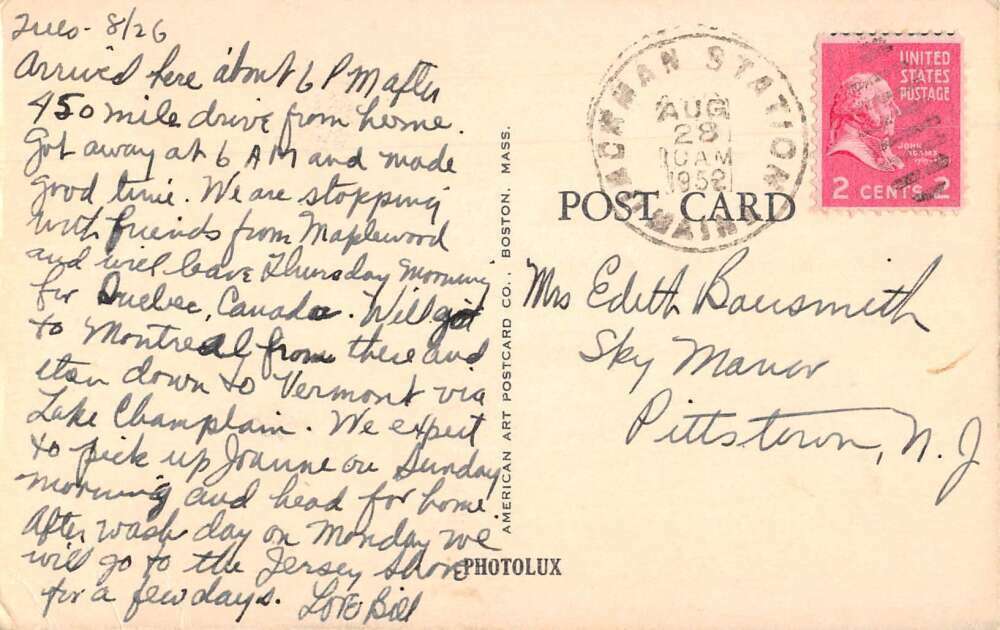 Tues - 8/26
Arrived here about 6 PM after
450 mile drive from home.
Got away at 6 AM and made
good time. We are stopping
with friends from Maplewood
and will leave Thursday morning
for Quebec, Canada. Will go
to Montreal from there and
then down to Vermont via
Lake Champlain. We expect
to pick up Joanne on Sunday
morning and head for home.
After wash day on Monday we
will go to the Jersey Shore
for a few days. Love Bill
AMERICAN ART POSTCARD CO., BOSTON, MASS.
PHOTOLUX
STATION
AUG
28
10 AM
1952
MAINE
UNITED
STATES
POSTAGE
JOHN
ADAMS
2 CENTS 2
POST CARD
Mrs Edith Bausmith
Sky Manor
Pittstown, N. J